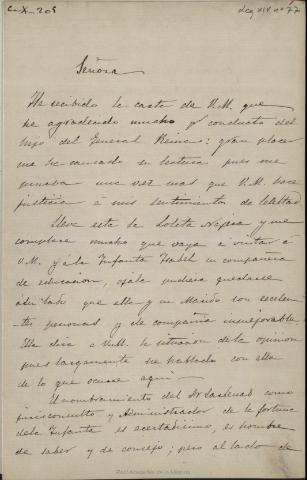 Ca-X-205
Leg XIV nº 77
Señora
He recibido la carta de V.M. que
he agradecido mucho pr conducto del
hijo del General Reina: gran placer
me ha causado su lectura pues me
una vez mas que V.M. hace
justicia á mis sentimientos de lealtad
Lleva esta la Loleta y me
complace mucho que vaya á visitar á
V.M. y á la Infanta Isabel en compañia
de educacion, ojala pudiera quedarse
á su lado que ella y su Marido son excelen
tes personas y de compañia inmejorable.
Ella dira á V.M. la situacion de la opinion
pues largamente he hablado con ella
de lo que ocurre aqui
El nombramiento del Sr como
jurisconsulto y Administrador de la fortuna
de la Infanta es acertadisimo, es hombre
de saber y de consejo; pero al lado de
Real Academia de la Historia